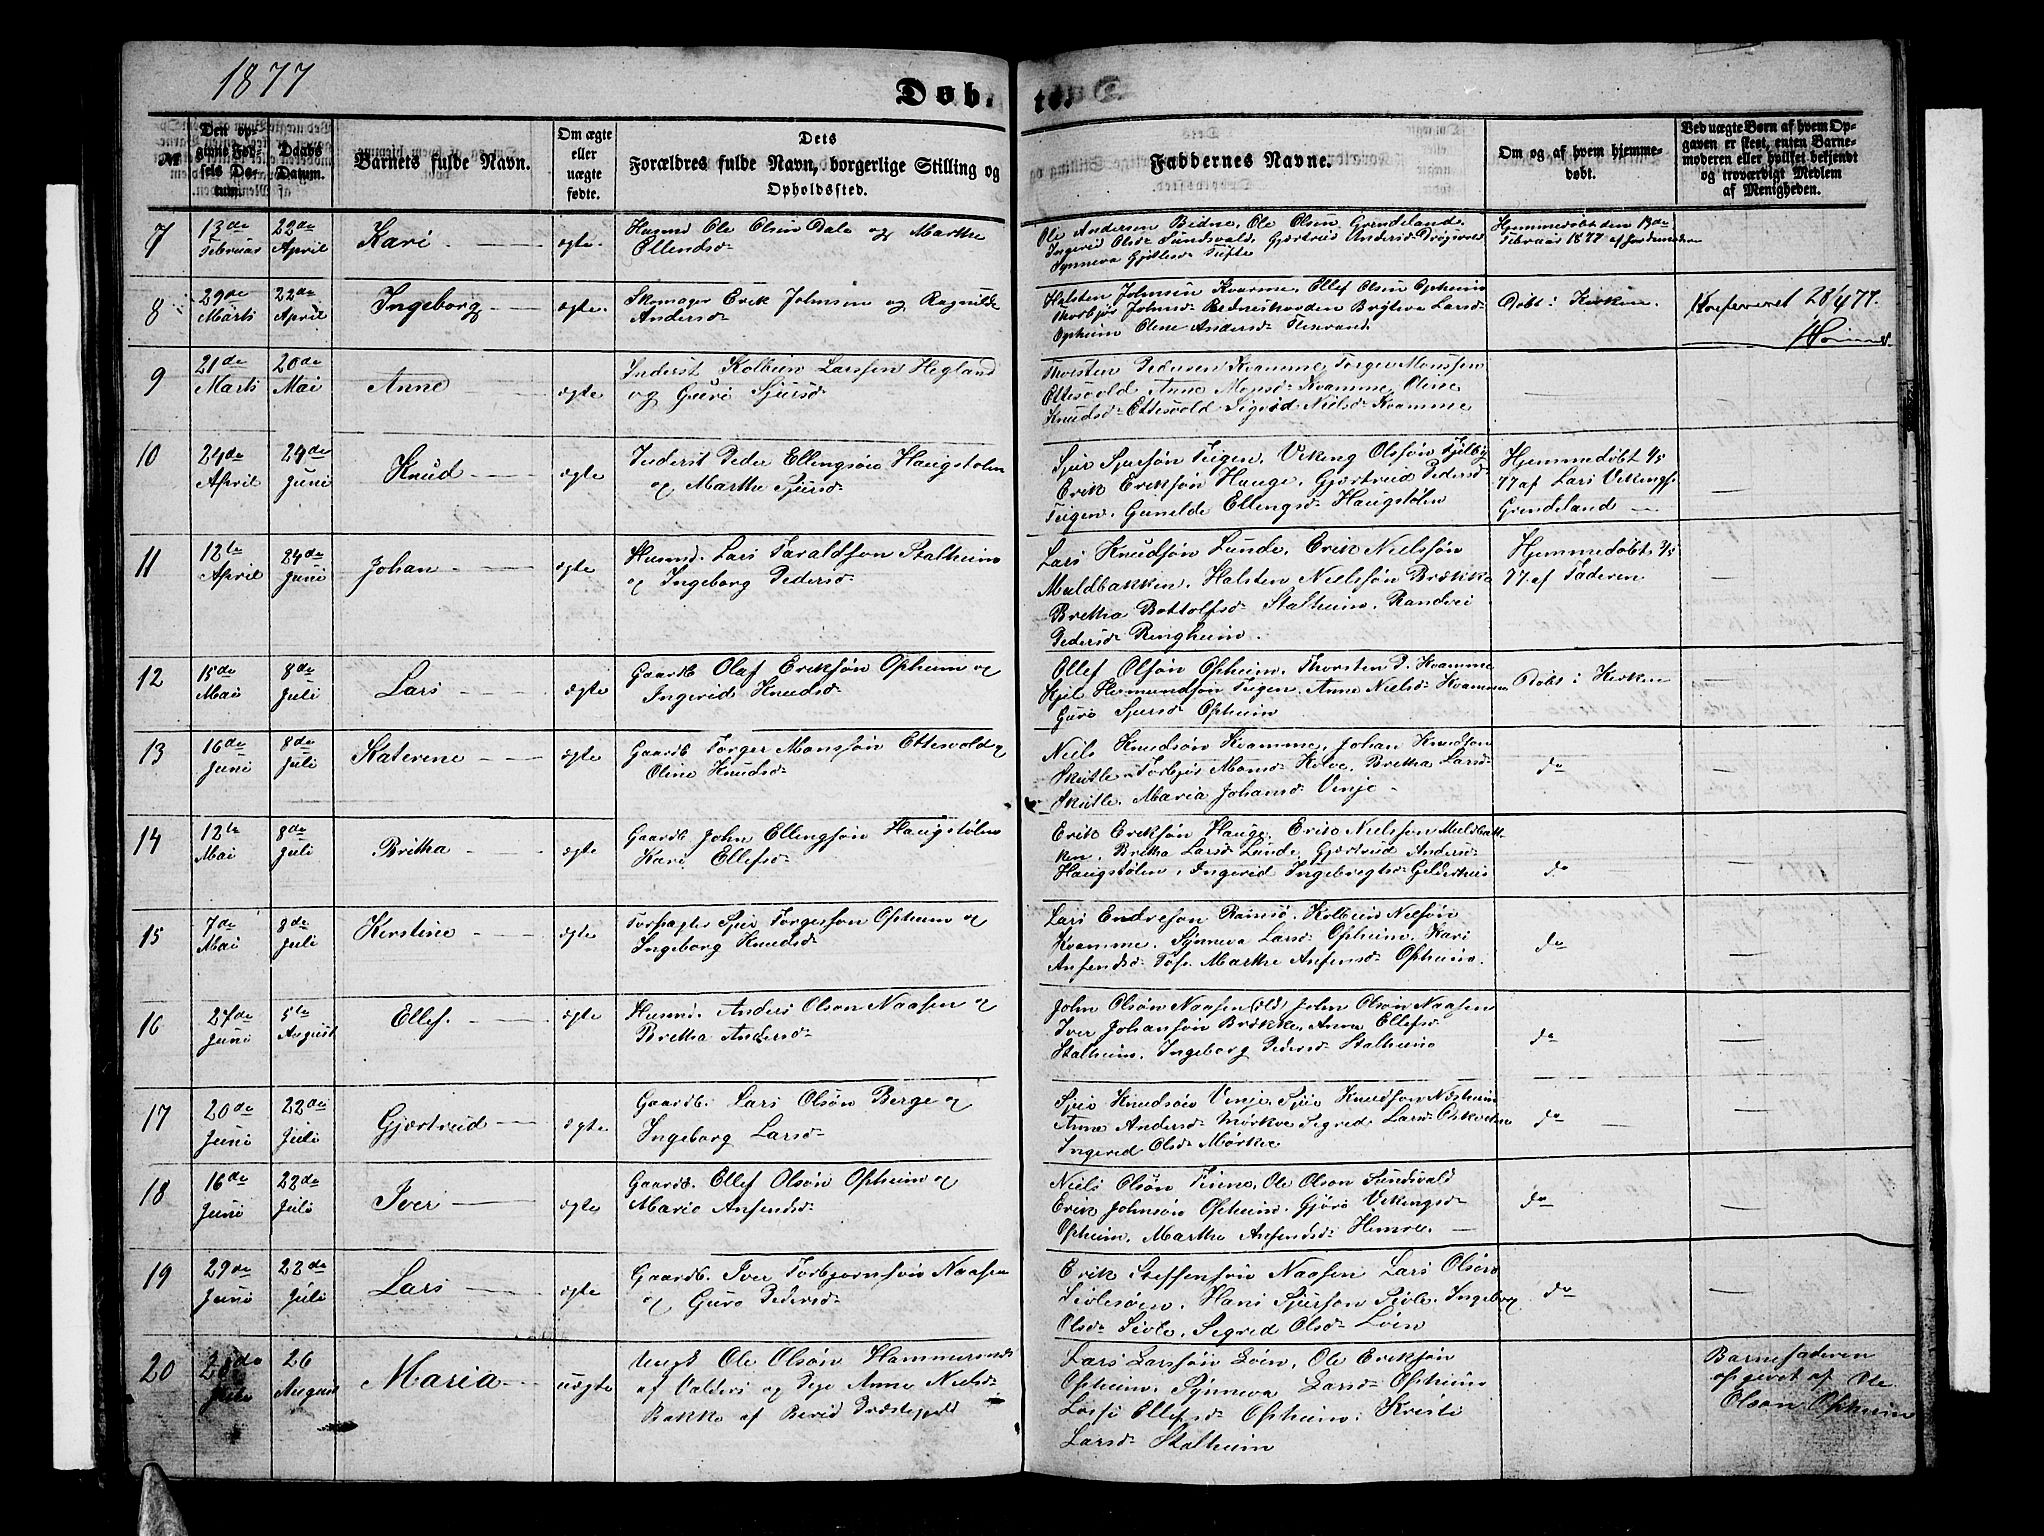 1877
Døb. te.
№
Den opgivne Fødsels Datum.
Daabs Datum.
Barnets fulde Navn.
Om ægte eller uægte fødte.
Dets Forældres fulde Navn, borgerlige Stilling og Opholdssted.
Faddernes Navne.
Om og af hvem hjemmedøbt.
Ved uægte Børn af hvem Opgaven er skeet, enten Barnemoderen eller hvilket bekjendt og troværdigt Medlem af Menigheden.
7
13de Februar
22de April
Kari
ægte
Husmd Ole Olsen Dale og Martha
Ellendsd
Ole Andersen Bidne, Ole Olsen Grendeland
Ingerid Olsd Sundsvald, Gjertrud Andersd
Synneva
Hjemmedøbt den 13de
Februar 1877 af Jordemoderen
8
29de Marts
22de April
Ingeborg
ægte
Skomager Erik Johnsen og Ragnilde
Andersd
Halsten Johnsen Kvamme, Ellef Olsen Opheim
Thorbjør Johnsd Bryteva Larsd
Opheim Oline Andersd
Døbt i Kirken.
Konfereret 28/4 77.
9
21de Marts
20de Mai
Anne
ægte
Inderst Kolbein Larssen Hegland
og Guri Sjursd
Thorsten Pedersen Kvamme, Torger Monssen
Ettesvold Anne Monsd Kvamme, Oline
Knudsd Ettesvold Sigrid Nielsd Kvamme
10
24de April
24de Juni
Knud
ægte
Inderst Peder Ellingsøn Haugstølen
og Martha Sjursd
Sjur Sjursøn Teigen, Viking Olsøn
Erik Eriksøn Hauge, Gjertrud Pedersd
Teigen, Gunilde Ellingsd Haugstølen
Hjemmedøbt 1/5
77 af Lars Vikings.
Grendeland
11
12te April
24de Juni
Johan
ægte
Husmd. Lars Taraldsøn Stalheim
og Ingeborg Pedersd
Lars Knudsøn Lunde, Erik Nielsøn
Muldbakken, Halsten Nielssøn Brække
Bretha Bottolfsd Stalheim, Randvei
Pedersd Ringheim.
Hjemmedøbt 3/5
77 af Faderen
12
15de Mai
8de Juli
Lars
ægte
Gaardb. Olaf Eriksøn Opheim og
Ingerid Knudsd
Ollef Olsøn Opheim, Thorsten P. Kvamme
Kjel Hermundsøn Teigen, Anne Nielsd Kvamme
Guro Sjursd Opheim
Døbt i Kirken
13
16de Juni
8de Juli
Katerine
ægte
Gaardb. Torger Monssøn Ettesvold og
Oline Knudsd
Niels Knudsøn Kvamme, Johan Knudsøn
Skutle Torbjør Monsd Kolve, Bretha Larsd
Skutle, Maria Johansd Vinje
do
14
12te Mai
8de Juli
Britha
ægte
Gaardb. John Ellingsøn Haugstølen
Kari Ellefsd
Erik Eriksøn Hauge, Erik Nielsøn Muldbak-
ken, Bretha Larsd Lunde, Gjertrud Andersd
Haugstølen, Ingerid Ingebrigtsd Gelderhus
do
15
7de Mai
8de Juli
Kerstine
ægte
Forpagter Sjur Torgersøn Opheim og
Ingeborg Knudsd
Lars Endresøn Kolbein Nielsøn
Kvamme, Synneva Larsd Opheim, Kari
Anfendsd Martha Anfensd Opheim.
do
16
27de Juni
5te August
Ellef.
ægte
Husmd. Anders Olsøn Naasen og
Bretha Andersd
John Olsøn Naasen (old) John Olsøn Naasen
Iver Johansøn Brække, Anna Ellefsd
Stalheim, Ingeborg Pedersd Stalheim
do
17
20de Juni
22de Juli
Gjertrud
ægte
Gaardb. Lars Olsøn Berge og
Ingeborg Larsd
Sjur Knudsøn Vinje, Sjur Knudsøn Nesheim
Anna Andersd Mørkve Sigrid Larsd
Ingerid Olsd Mørkve
do
18
16de Juni
22de Juli
Iver
ægte
Gaardb. Ellef Olsøn Opheim og
Marie Anfendsd
Niels Olsøn Ole Olsøn Sundsvald
Erik Johnsøn Opheim, Gjøro Vikingsd
Opheim, Martha Anfendsd Himle.
do
19
29de Juni
22de Juli
Lars
ægte
Gaardb. Iver Torbjørnsøn Naasen
og Guro Pedersd
Erik Steffensøn Naasen Lars Olsøn
Hans Sjursøn Sivle, Ingeborg
Olsd Sivle, Sigrid Olsd Løin
do
20
26 August
Maria
uægte
Ungk Ole Olsøn
af Valders og Pige Anne Nielsd
Bakke af
Lars Larssøn Løin, Ole Eriksøn
Opheim, Synneva Larsd Opheim
Ellefsd Opheim, Kristi
Larsd Stalheim
Barnefaderen
opgivet af Ole
Olson Opheim